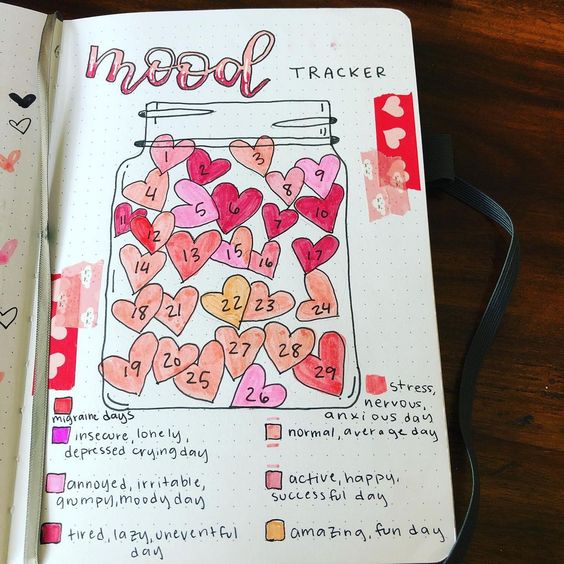 mood TRACKER
1 2 3
4 5 6 8 9
11 2 7 10
14 13 15 16 17
18 21 22 23 24
19 20 25 27 28 29
26
migraine days
stress, nervous, anxious day
insecure, lonely, depressed crying day
normal, average day
annoyed, irritable, grumpy, moody day
active, happy, successful day
tired, lazy, uneventful day
amazing, fun day